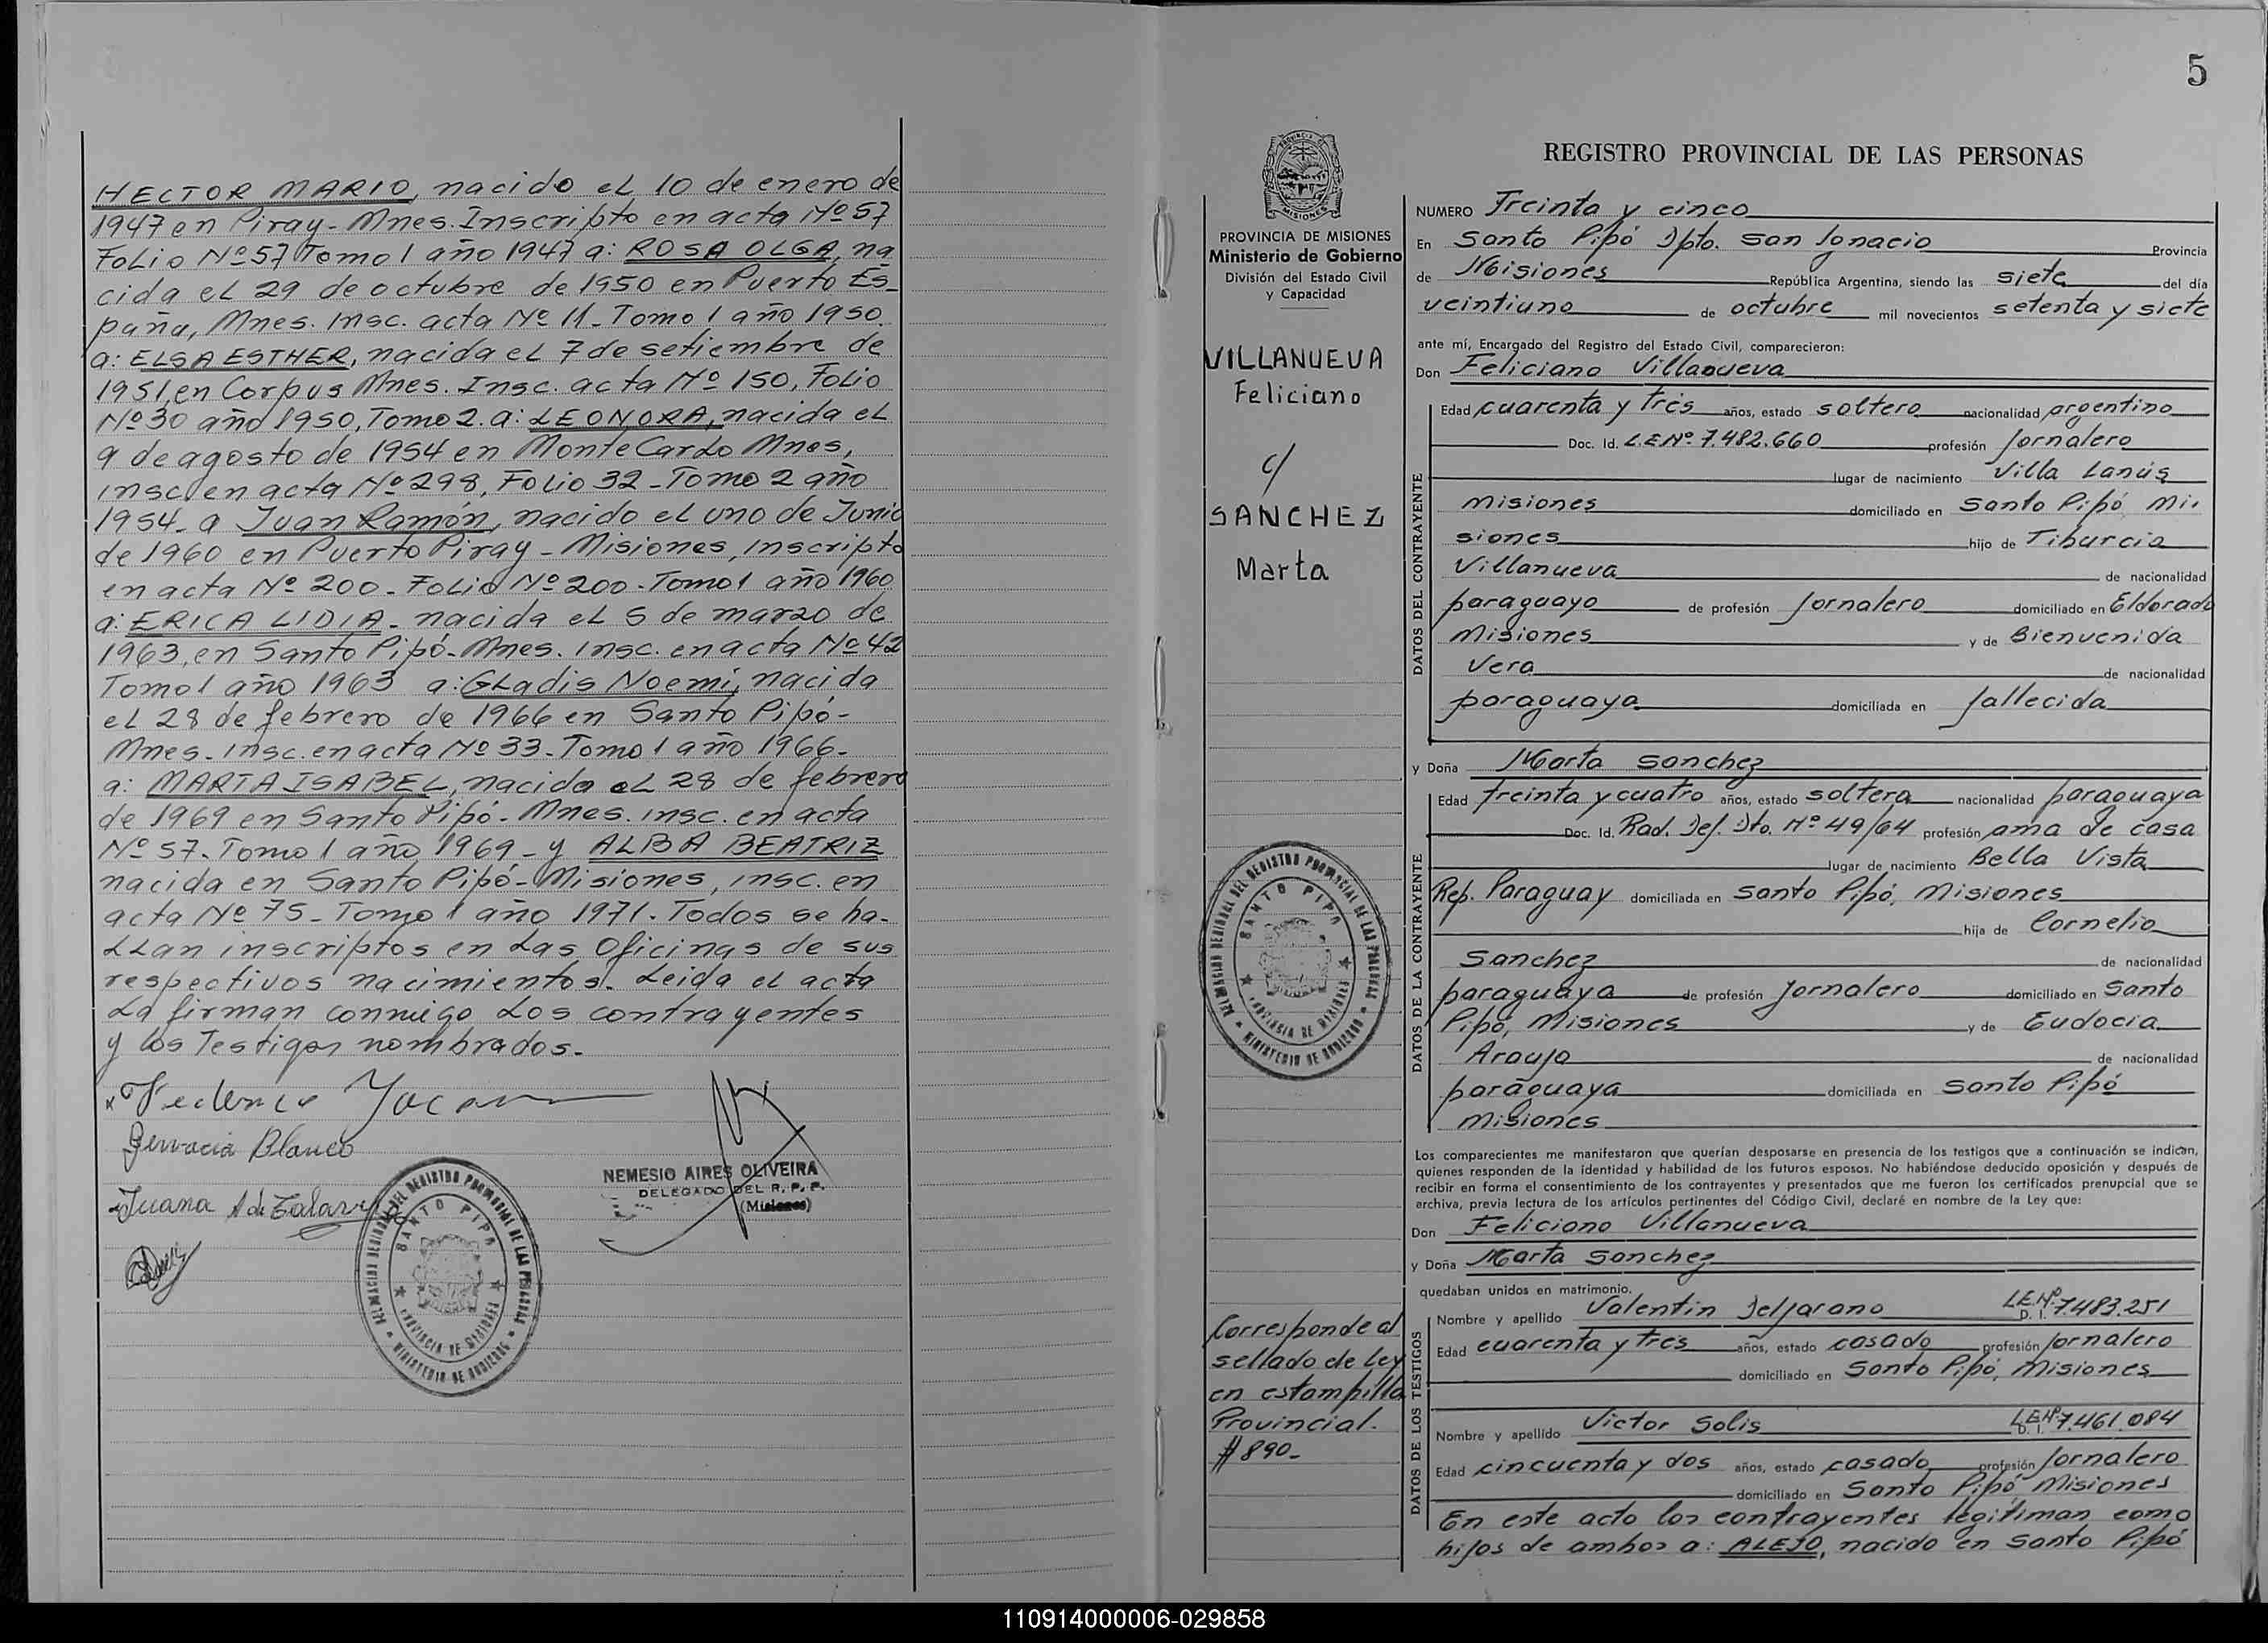 HECTOR MARIO, nacido el 10 de enero de
1947 en Piray - Mnes. Inscripto en acta Nº 57
Folio Nº 57 Tomo 1 año 1947 a: ROSA OLGA, na
cida el 29 de octubre de 1950 en Puerto Es-
paña, Mnes. Insc. acta Nº 11 - Tomo 1 año 1950.
a: ELSA ESTHER, nacida el 7 de setiembre de
1951, en Corpus Mnes. Insc. acta Nº 150, Folio
Nº 30 año 1950, Tomo 2. a: LEONORA, nacida el
9 de agosto de 1954 en Monte Carlo Mnes,
insc. en acta Nº 298, Folio 32 - Tomo 2 año
1954 - a Juan Ramón, nacido el uno de Junio
de 1960 en Puerto Piray - Misiones, inscripto
en acta Nº 200 - Folio Nº 200 - Tomo 1 año 1960
a: ERICA LIDIA - nacida el 5 de marzo de
1963, en Santo Pipó - Mnes. insc. en acta Nº 42
Tomo 1 año 1963 a: GLadis Noemi, nacida
el 28 de febrero de 1966 en Santo Pipó -
Mnes. insc. en acta Nº 33 - Tomo 1 año 1966 -
a: MARTA ISABEL, nacida el 28 de febrero
de 1969 en Santo Pipó - Mnes. insc. en acta
Nº 57 - Tomo 1 año 1969 - y ALBA BEATRIZ
nacida en Santo Pipó - Misiones, insc. en
acta Nº 75 - Tomo 1 año 1971 - Todos se ha-
llan inscriptos en las Oficinas de sus
respectivos nacimientos. Leida el acta
la firman conmigo los contrayentes
y los Testigos nombrados.-
Gervacia Blanco
Juana A de
NEMESIO AIRES OLIVEIRA
DELEGADO DEL R. P. P.
(Misiones)
DELEGACION REGIONAL DEL REGISTRO PROVINCIAL DE LAS PERSONAS
SANTO PIPO
PROVINCIA DE MISIONES
MINISTERIO DE GOBIERNO
5
PROVINCIA DE MISIONES
Ministerio de Gobierno
División del Estado Civil
y Capacidad
VILLANUEVA
Feliciano
c/
SANCHEZ
Marta
DELEGACION REGIONAL DEL REGISTRO PROVINCIAL DE LAS PERSONAS
SANTO PIPO
PROVINCIA DE MISIONES
MINISTERIO DE GOBIERNO
Corresponde al
sellado de Ley
en estampilla
Provincial.
$ 890-
REGISTRO PROVINCIAL DE LAS PERSONAS
NUMERO Treinta y cinco
En Santo Pipó Dpto. San Ignacio Provincia
de Misiones República Argentina, siendo las siete del día
veintiuno de octubre mil novecientos setenta y siete
ante mí, Encargado del Registro del Estado Civil, comparecieron:
Don Feliciano Villanueva
DATOS DEL CONTRAYENTE
Edad cuarenta y tres años, estado soltero nacionalidad argentino
Doc. Id. L.E.Nº 7.482.660 profesión Jornalero
lugar de nacimiento Villa Lanús
Misiones domiciliado en Santo Pipó Mi-
siones hijo de Tiburcio
Villanueva de nacionalidad
paraguayo de profesión Jornalero domiciliado en Eldorado
Misiones y de Bienvenida
Vera de nacionalidad
paraguaya domiciliada en fallecida
y Doña Marta Sanchez
DATOS DE LA CONTRAYENTE
Edad treinta y cuatro años, estado soltera nacionalidad paraguaya
Doc. Id. Rad. Def. Dto. Nº 49/64 profesión ama de casa
lugar de nacimiento Bella Vista
Rep. Paraguay domiciliada en Santo Pipó, Misiones
hija de Cornelio
Sanchez de nacionalidad
paraguaya de profesión Jornalero domiciliado en Santo
Pipó, Misiones y de Eudocia
Araujo de nacionalidad
paraguaya domiciliada en Santo Pipó
Misiones
Los comparecientes me manifestaron que querían desposarse en presencia de los testigos que a continuación se indican,
quienes responden de la identidad y habilidad de los futuros esposos. No habiéndose deducido oposición y después de
recibir en forma el consentimiento de los contrayentes y presentados que me fueron los certificados prenupcial que se
archiva, previa lectura de los artículos pertinentes del Código Civil, declaré en nombre de la Ley que:
Don Feliciano Villanueva
y Doña Marta Sanchez
quedaban unidos en matrimonio.
DATOS DE LOS TESTIGOS
Nombre y apellido Valentin Dejjarano D. I. L.E.Nº 7.483.251
Edad cuarenta y tres años, estado casado profesión Jornalero
domiciliado en Santo Pipó, Misiones
Nombre y apellido Victor Solis D. I. L.E.Nº 7.461.084
Edad cincuenta y dos años, estado casado profesión Jornalero
domiciliado en Santo Pipó Misiones
En este acto los contrayentes legitiman como
hijos de ambos a: ALEJO, nacido en Santo Pipó
110914000006-029858